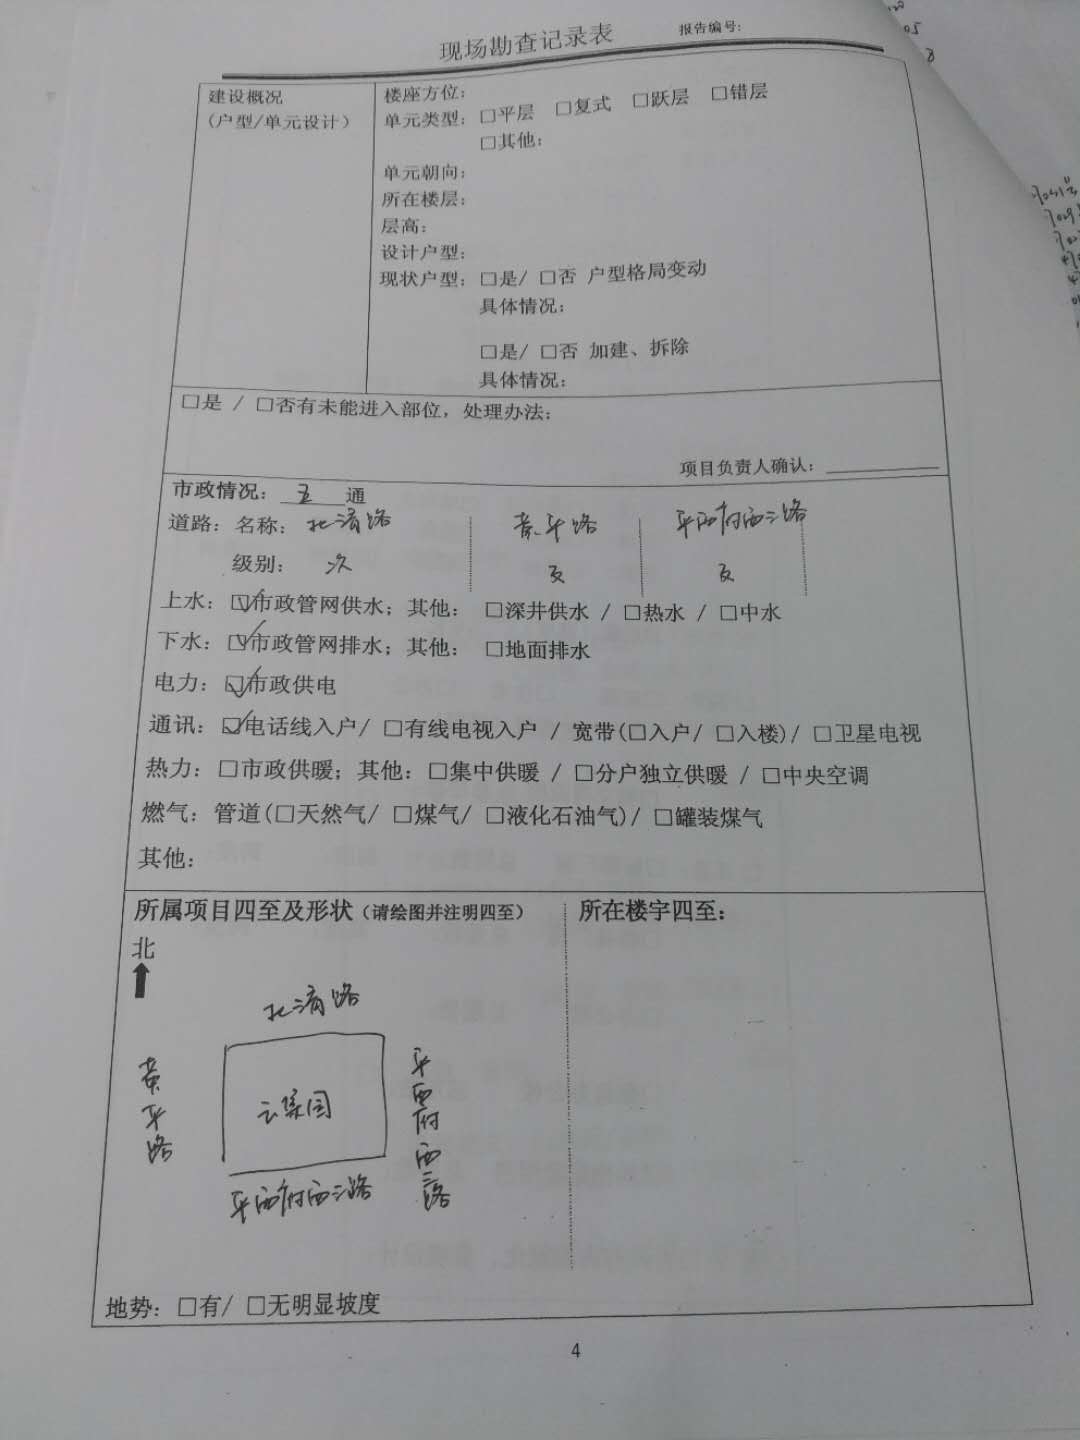 现场勘查记录表
报告编号:
建设概况
(户型/单元设计)
楼座方位:
单元类型: □平层 □复式 □跃层 □错层
□其他:
单元朝向:
所在楼层:
层高:
设计户型:
现状户型: □是/ □否 户型格局变动
具体情况:
□是/ □否 加建、拆除
具体情况:
□是 / □否有未能进入部位, 处理办法:
项目负责人确认:
市政情况: 五 通
道路: 名称: 北清路 黄平路 平西府西三路
级别: 次 支 支
上水: ☑市政管网供水; 其他: □深井供水 / □热水 / □中水
下水: ☑市政管网排水; 其他: □地面排水
电力: ☑市政供电
通讯: ☑电话线入户/ □有线电视入户 / 宽带(□入户/ □入楼)/ □卫星电视
热力: □市政供暖; 其他: □集中供暖 / □分户独立供暖 / □中央空调
燃气: 管道(□天然气/ □煤气/ □液化石油气)/ □罐装煤气
其他:
所属项目四至及形状(请绘图并注明四至)
所在楼宇四至:
北
北清路
黄平路
云集园
平西府西二路
平西府西三路
地势: □有/ □无明显坡度
4